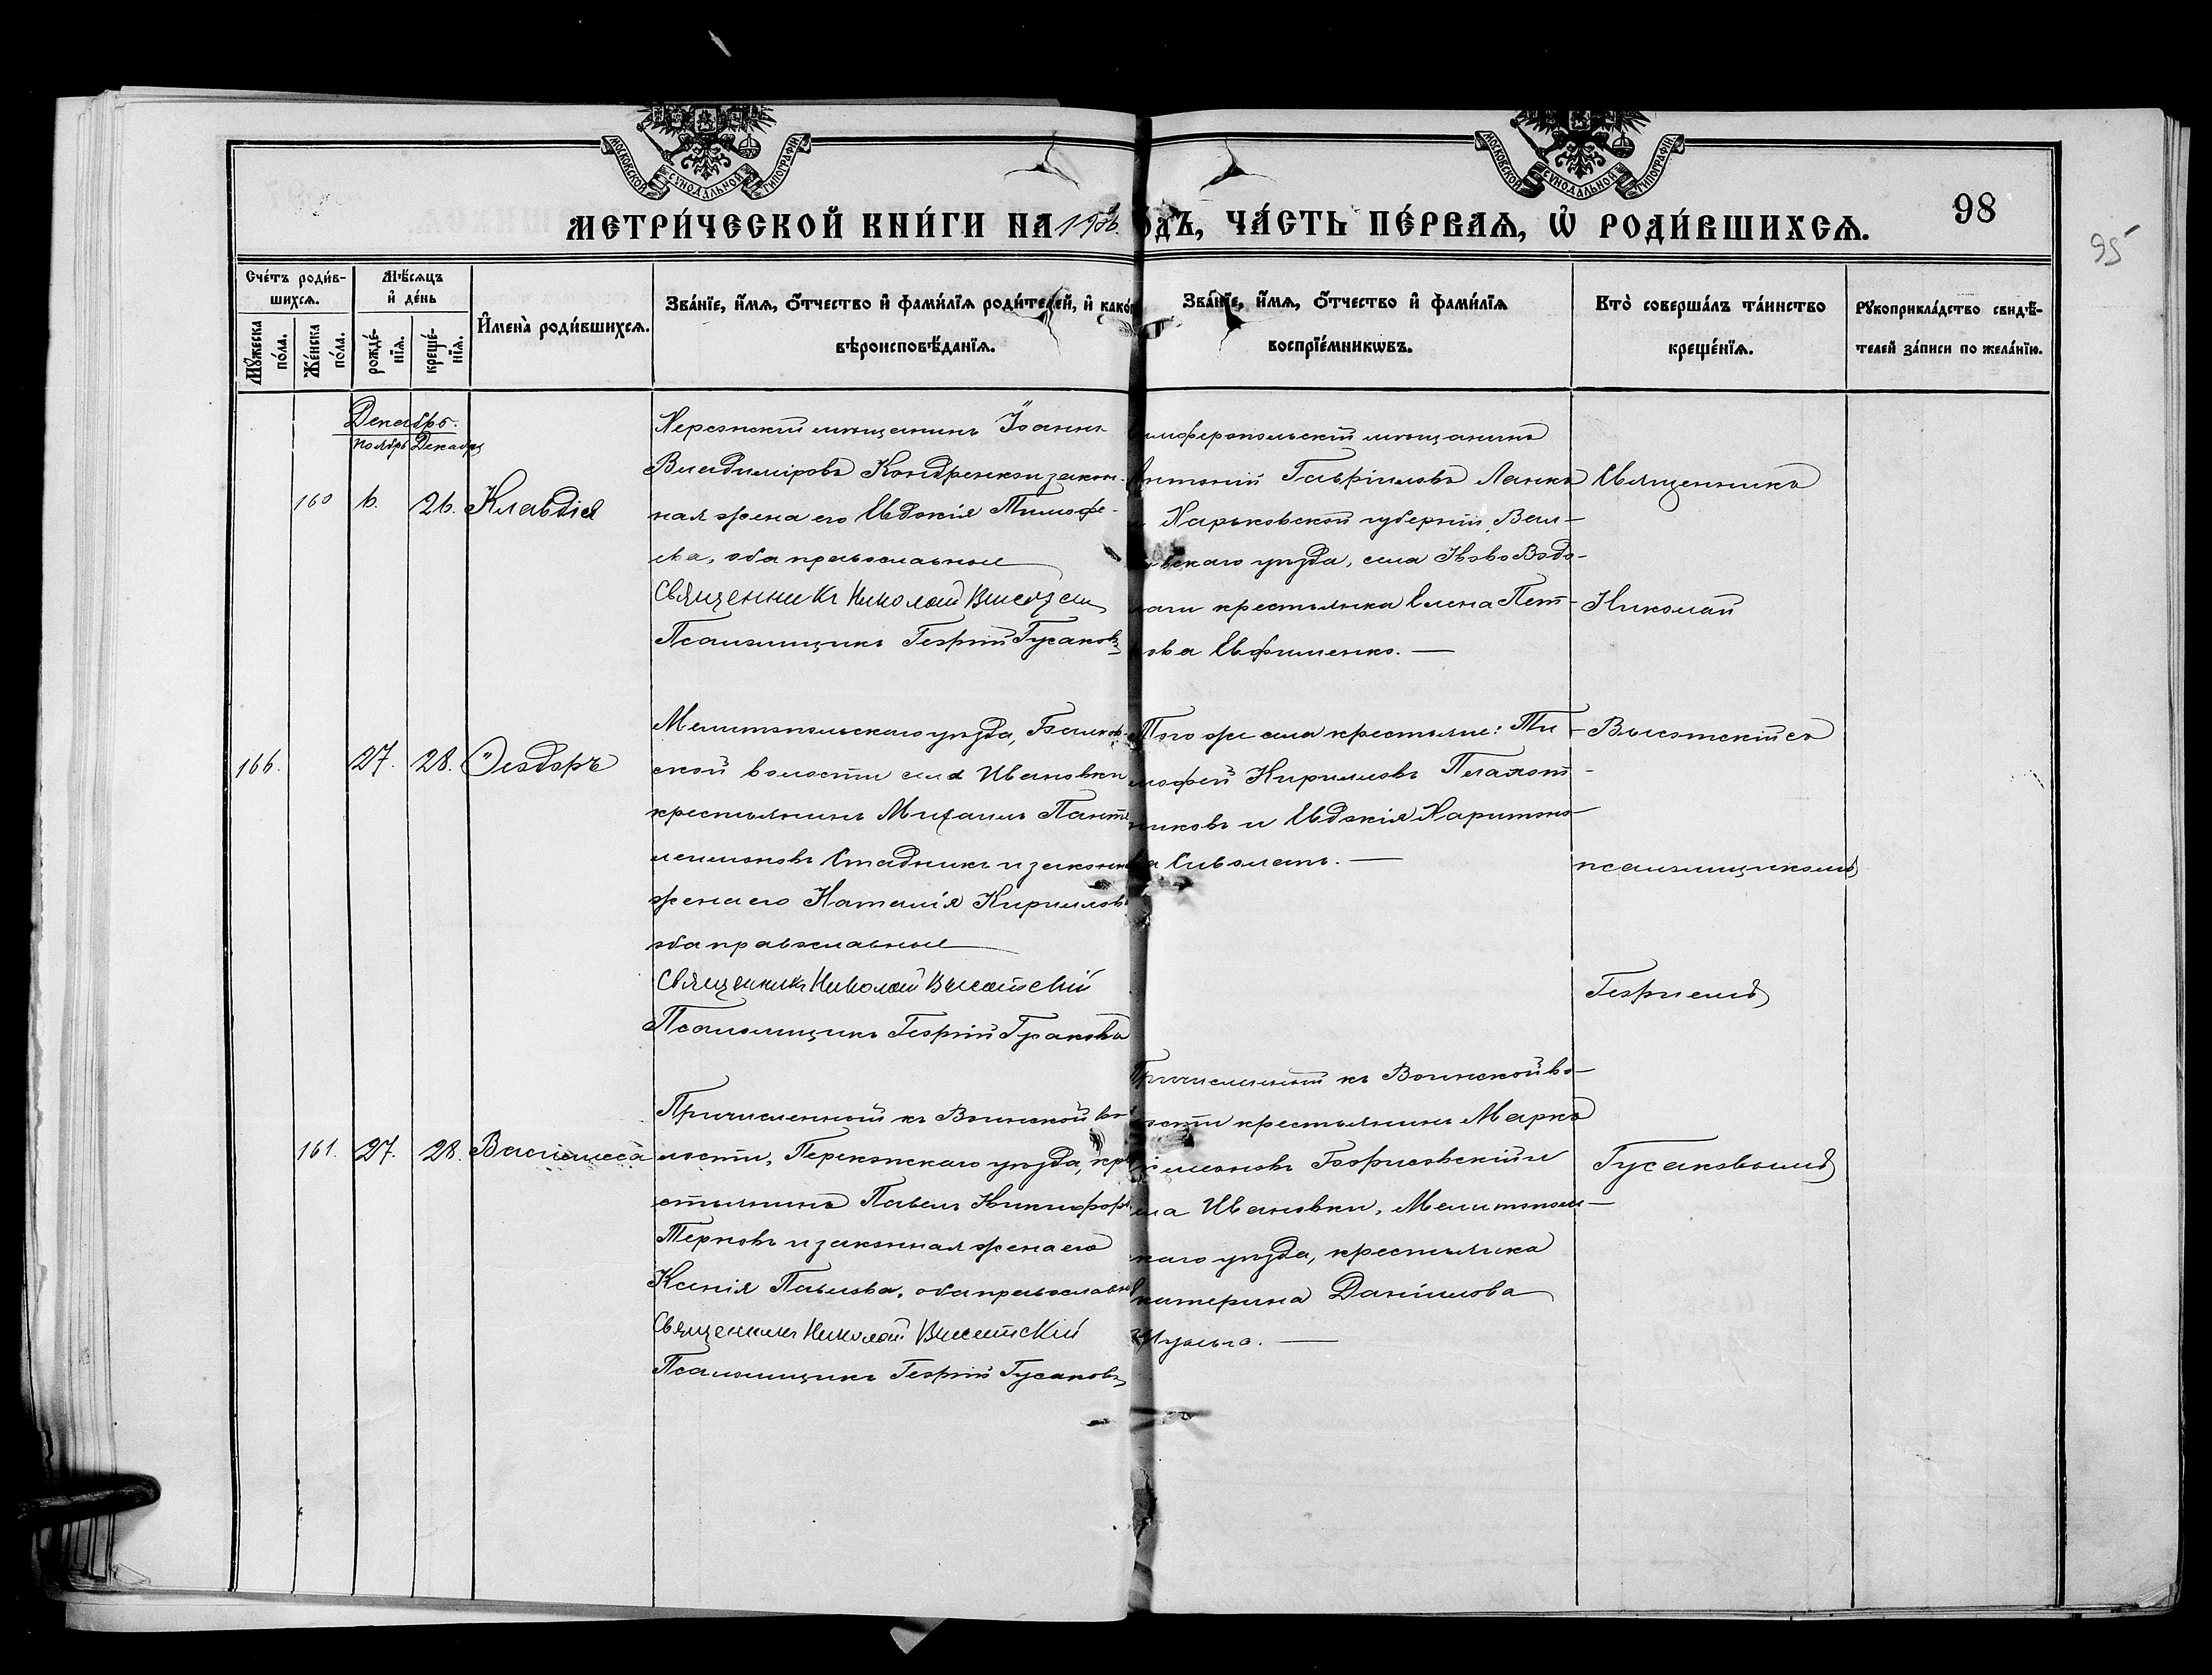 МОСКОВСКОЙ СѴНОДАЛЬНОЙ ТИПОГРАФІИ.
МОСКОВСКОЙ СѴНОДАЛЬНОЙ ТИПОГРАФІИ.
МЕТРИ́ЧЕСКОЙ КНИ́ГИ НА 1906. ОДЪ, ЧА́СТЬ ПЕ́РВАѦ, Ѡ҆ РОДИ́ВШИХСѦ.
98
95
Сче́тъ роди́в-
шихсѧ.
Мꙋжеска по́ла.
Же́нска по́ла.
Мѣ́сѧцъ
и҆ де́нь
рожде́-
нїѧ.
креще́-
нїѧ.
И҆мена̀ роди́вшихсѧ.
Зва́нїе, и҆́мѧ, ѻ҆́тчество и҆ фами́лїѧ роди́телей, и҆ како́
вѣроисповѣ́данїѧ.
Зва́нїе, и҆́мѧ, ѻ҆́тчество и҆ фами́лїѧ
воспрїе́мникѡвъ.
Кто̀ соверша́лъ та́инство
креще́нїѧ.
Рꙋкоприкла́дство свидѣ́-
телей за́писи по жела́нїю.
Декабрь.
Ноябрь Декабрь
160 6. 26. Клавдія
Херсонскій мѣщанинъ Іоаннъ
Владиміровъ Кондренко и закон-
ная жена его Евдокія Тимофе-
ева, оба православные
Священникъ Николай
Псаломщикъ Георгій Гусаковъ
имферопольскій мѣщанинъ
Антоній Гавріиловъ Ланко
и Харьковской губерніи, Вал-
овскаго уѣзда, села Ново Водо-
лаги крестьянка Елена Пет-
рова Евфименко.
166. 27. 28. Ѳеодоръ
Мелитопольскаго уѣзда,
ской волости села Ивановки
крестьянинъ Михаилъ Панте
леимоновъ Стадникъ и законная
жена его Наталія Кириллова
оба православные
Священникъ Николай Высотскій
Псаломщикъ Георгій Гусаковъ
Того же села крестьяне: Ти-
мофей Кирилловъ Плахот-
никовъ и Евдокія Харитоно-
ва Сиволапъ.
161. 27. 28. Василисса
Причисленный къ Воинской во
лости, Перекопскаго уѣзда, кре
стьянинъ Павелъ Никифоровъ
Терновъ и законная жена его
Ксенія Павлова, оба православные
Священникъ Николай Высотскій
Псаломщикъ Георгій Гусаковъ
Причисленный къ Воинской во-
лости крестьянинъ Марко
Борисовскій и
села Ивановки, Мелитополь-
скаго уѣзда, крестьянка
Екатерина Даніилова
Шульга.
Священникъ
Николай
Высотскій съ
псаломщикомъ
Георгіемъ
Гусаковымъ